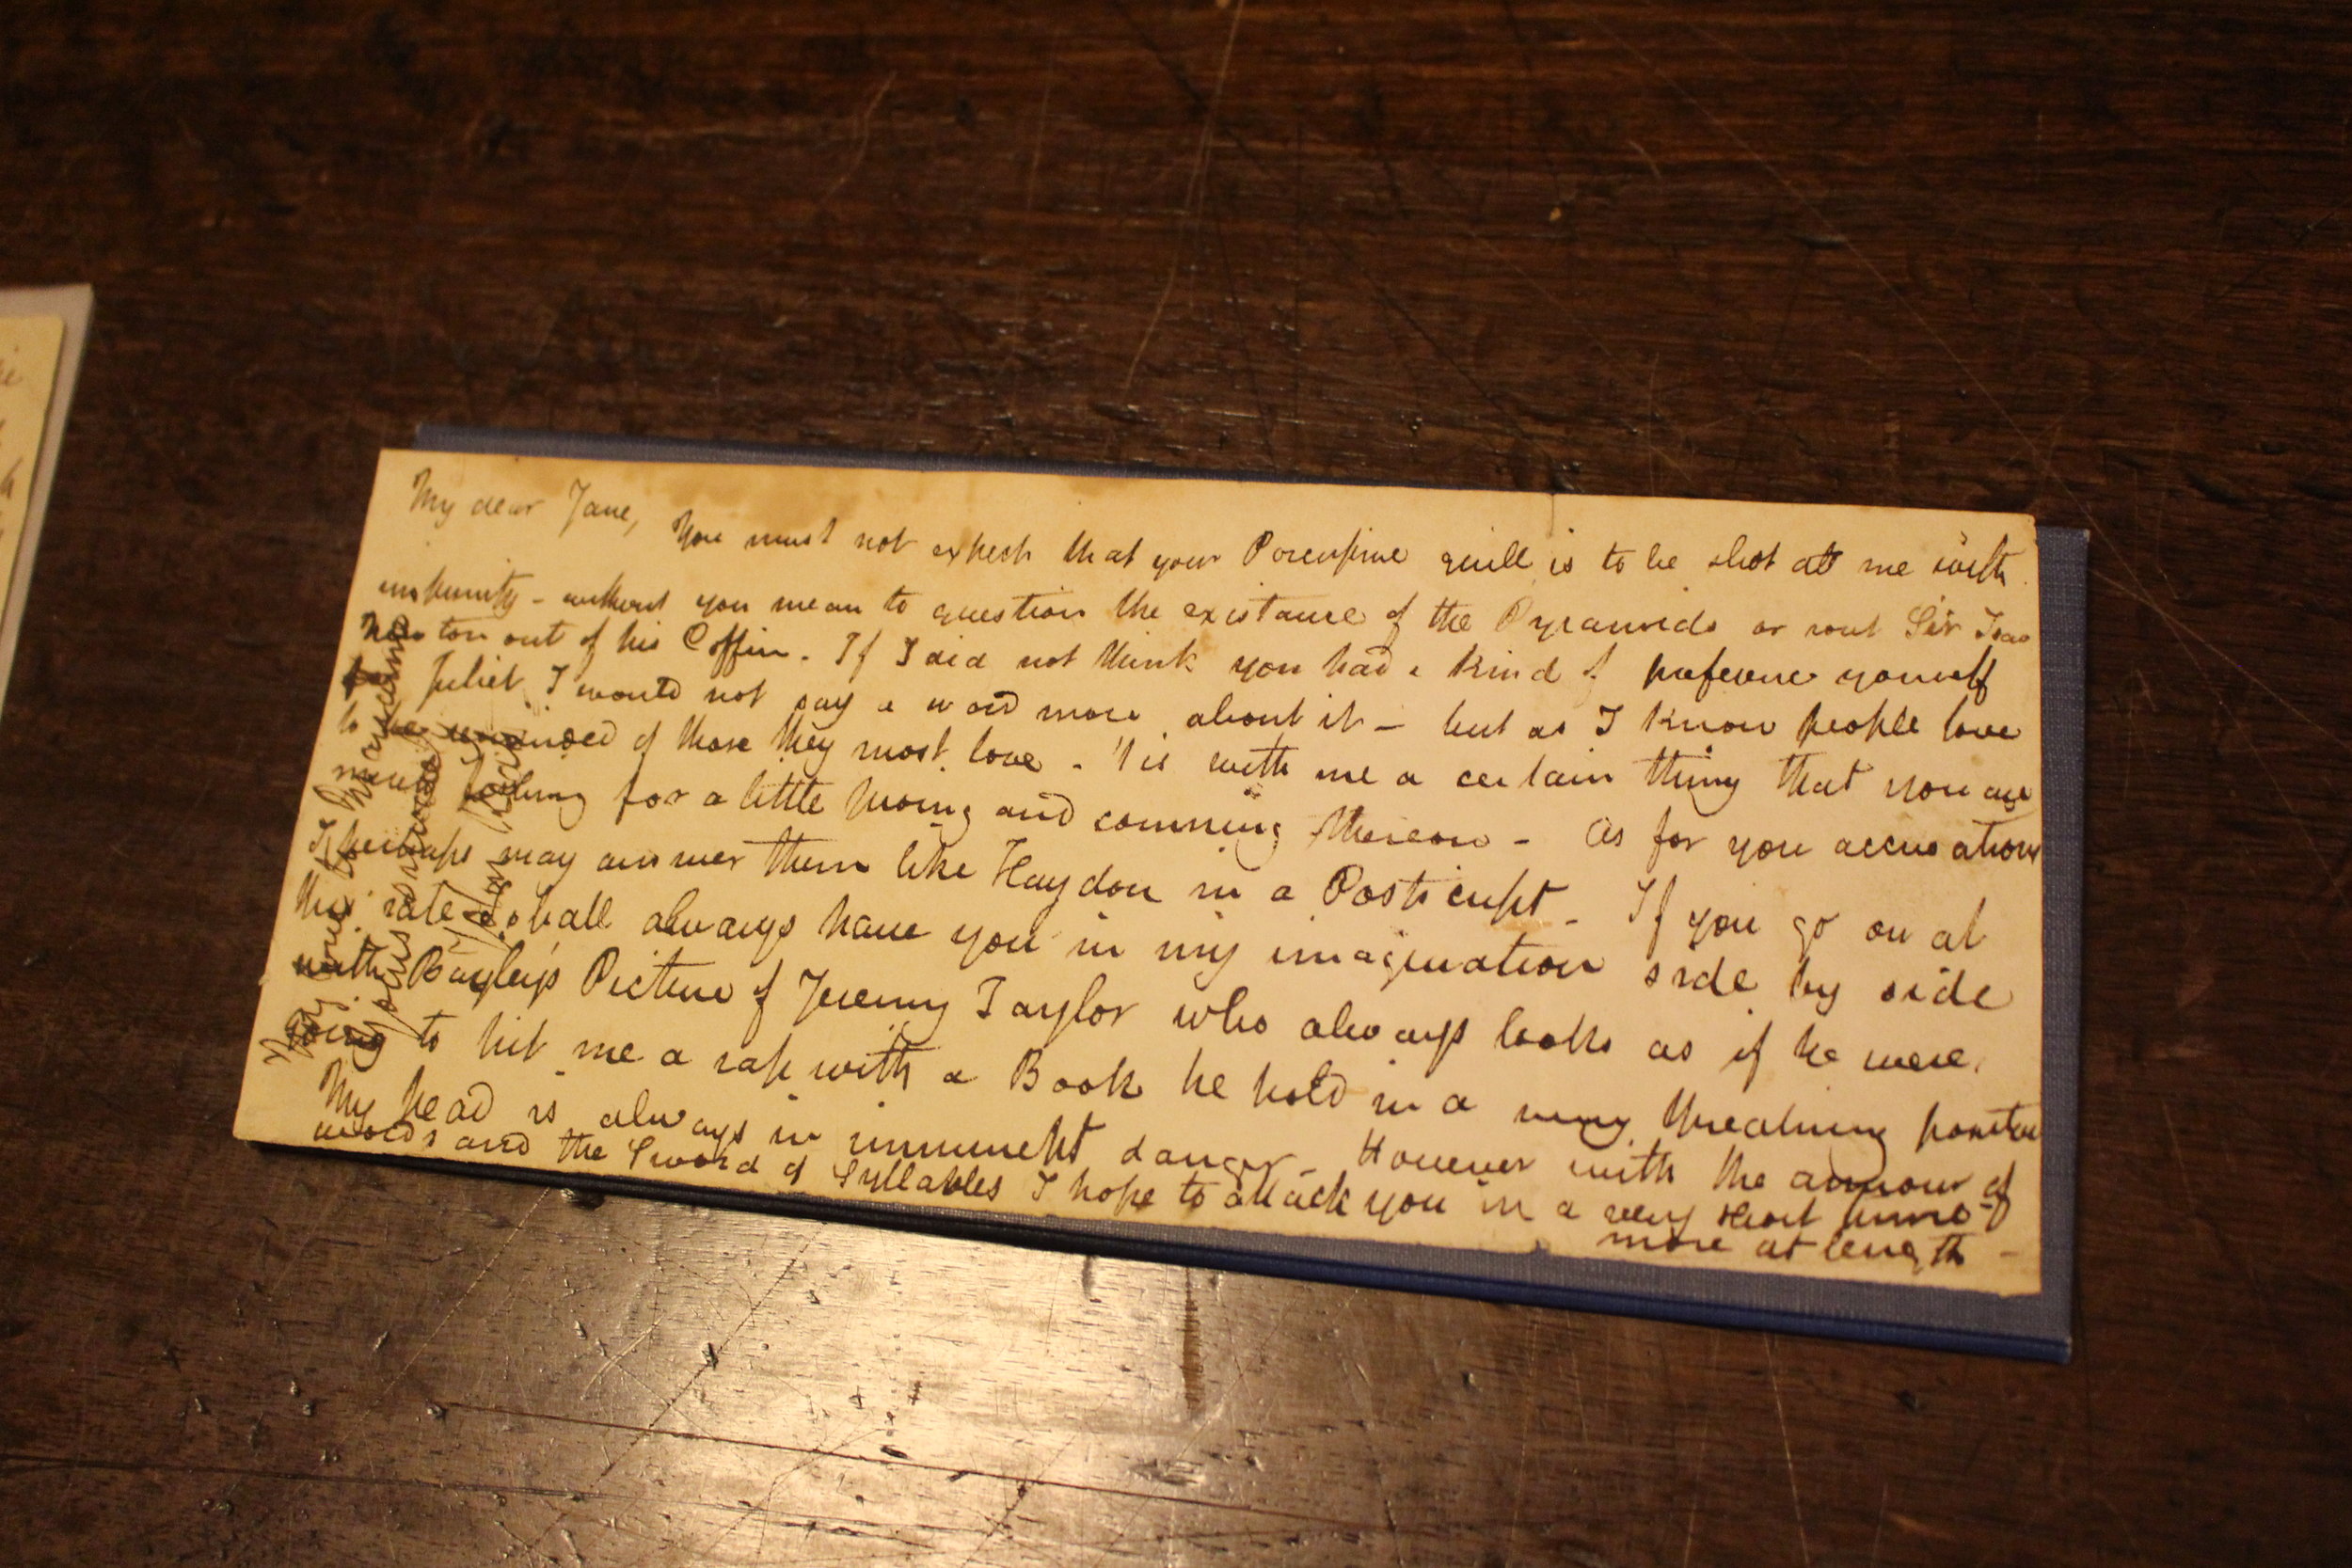 My dear Jane, You must not expect that your Porcupine quill is to be shot at me with
impunity - without you mean to question the existance of the Pyramids or rout Sir Isaac
Newton out of his Coffin. If I did not think you had a kind of preference yourself
for Juliet I would not say a word more about it - but as I know people love
to be reminded of those they most love - 'tis with me a certain thing that you are
merely fishing for a little proing and conning thereon - As for your accusations
I perhaps may answer them like Haydon in a Postscript - If you go on at
this rate I shall always have you in my imagination side by side
with Bayley's Picture of Jeremy Taylor who always looks as if he were
going to hit me a rap with a Book he hold in a very threatning posture
My head is always in imminent danger - However with the armour of
words and the Sword of Syllables I hope to attack you in a very short time
more at length -
My love to Marianne
Yours sincerely
John Keats